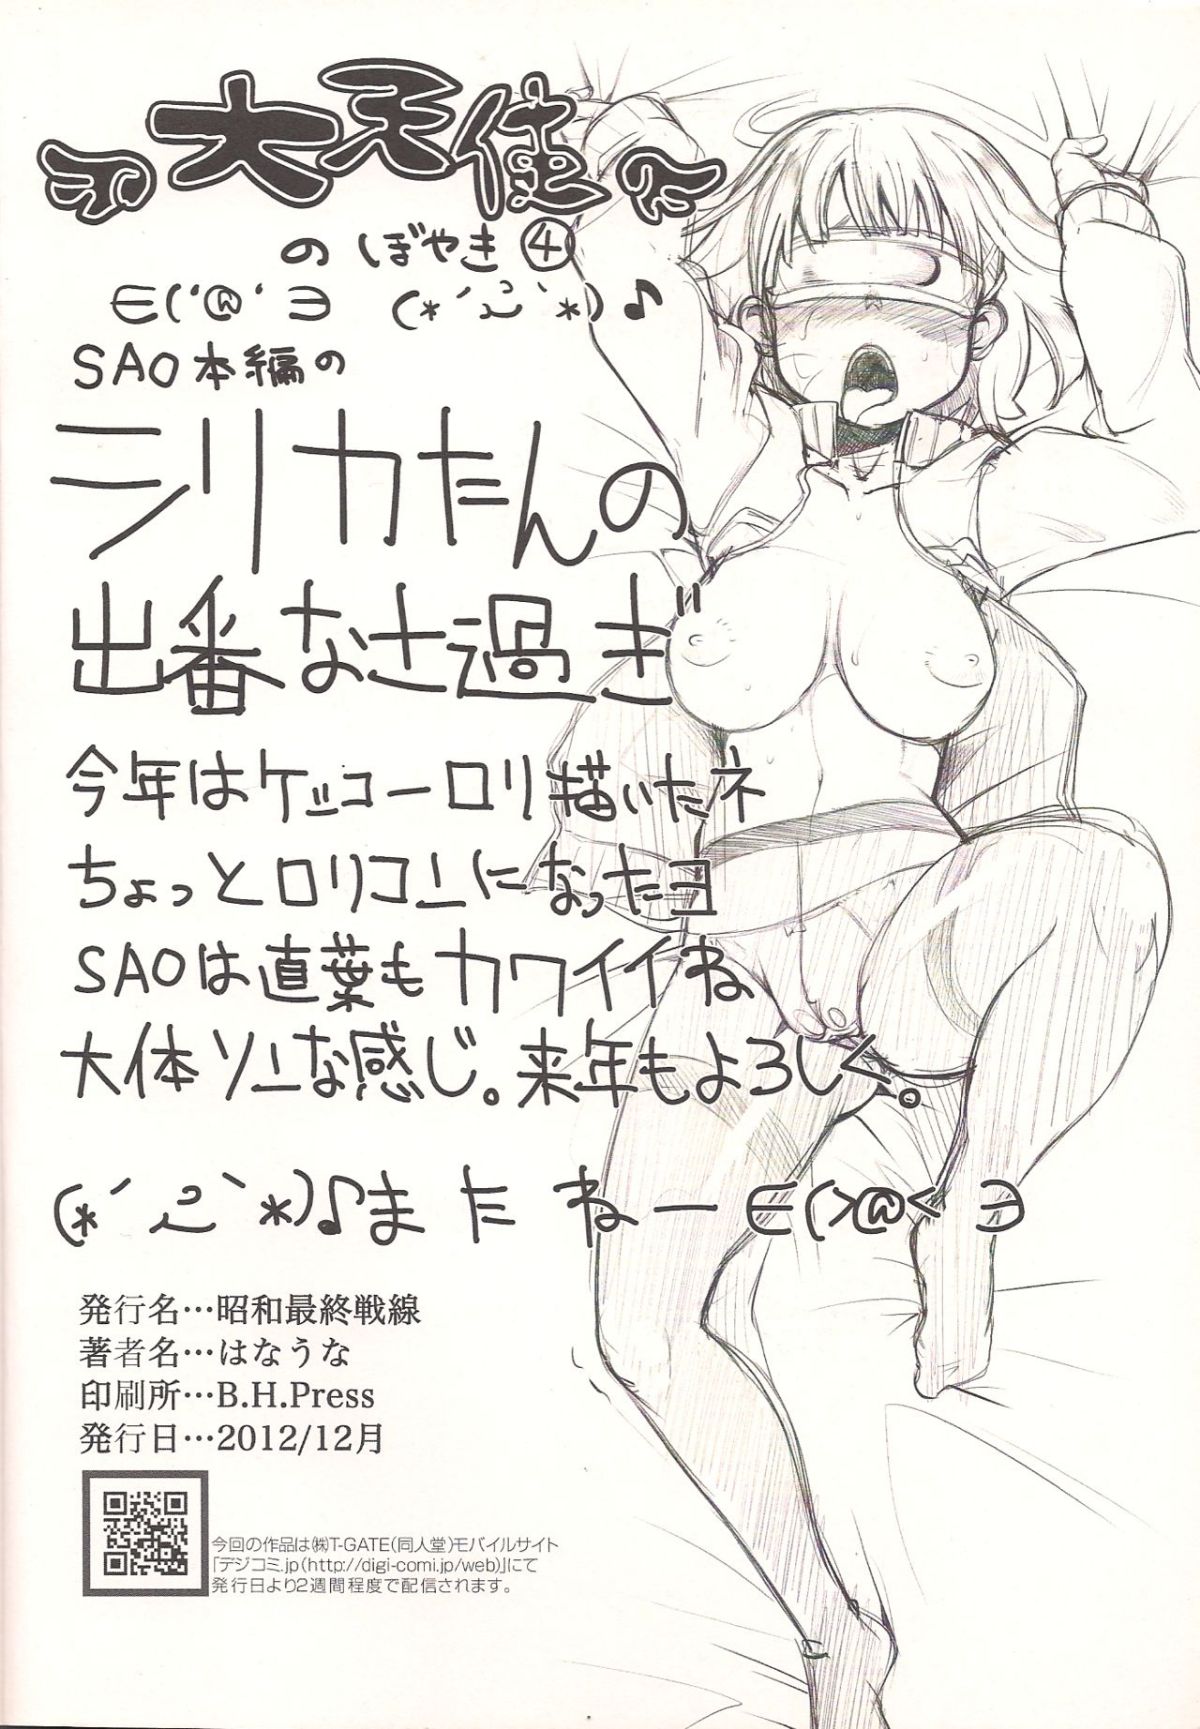 大天使
の ぼやき④
∈(‘@‘∋ (*´ー`*)♪
SAO本編の
シリカたんの
出番なさ過ぎ
今年はケッコーロリ描いたネ
ちょっとロリコンになったヨ
SAOは直葉もカワイイね
大体ソーな感じ。来年もよろしく。
(*´ー`*)♪またねー∈(>@<∋
発行名…昭和最終戦線
著者名…はなうな
印刷所…B.H.Press
発行日…2012/12月
今回の作品は㈱T-GATE(同人堂)モバイルサイト
「デジコミ.jp(http://digi-comi.jp/web)」にて
発行日より2週間程度で配信されます。